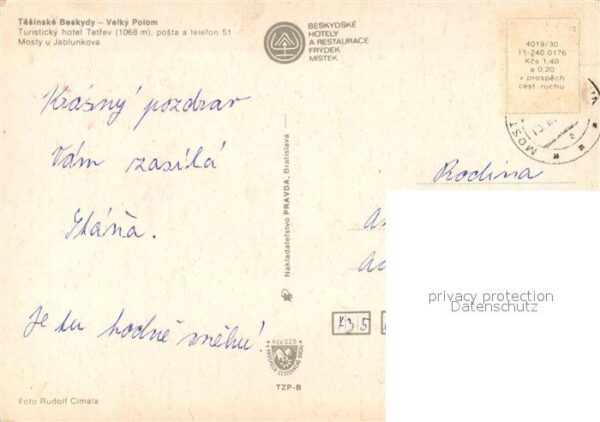 Těšinské Beskydy – Velký Polom
Turistický hotel Tetřev (1068 m), pošta a telefon 51
Mosty u Jablunkova
BESKYDSKÉ
HOTELY
A RESTAURACE
FRÝDEK
MÍSTEK
4019/30
11-240 0176
Kčs 1,40
a 0,20
v prospěch
cest. ruchu
MOST
Krásný pozdrav
Vám zasílá
Stáňa.
Je tu hodně sněhu!
Nakladatelstvo PRAVDA, Bratislava
Rodina
privacy protection
Datenschutz
Kčs 0,20
TZP-B
Foto Rudolf Cimala